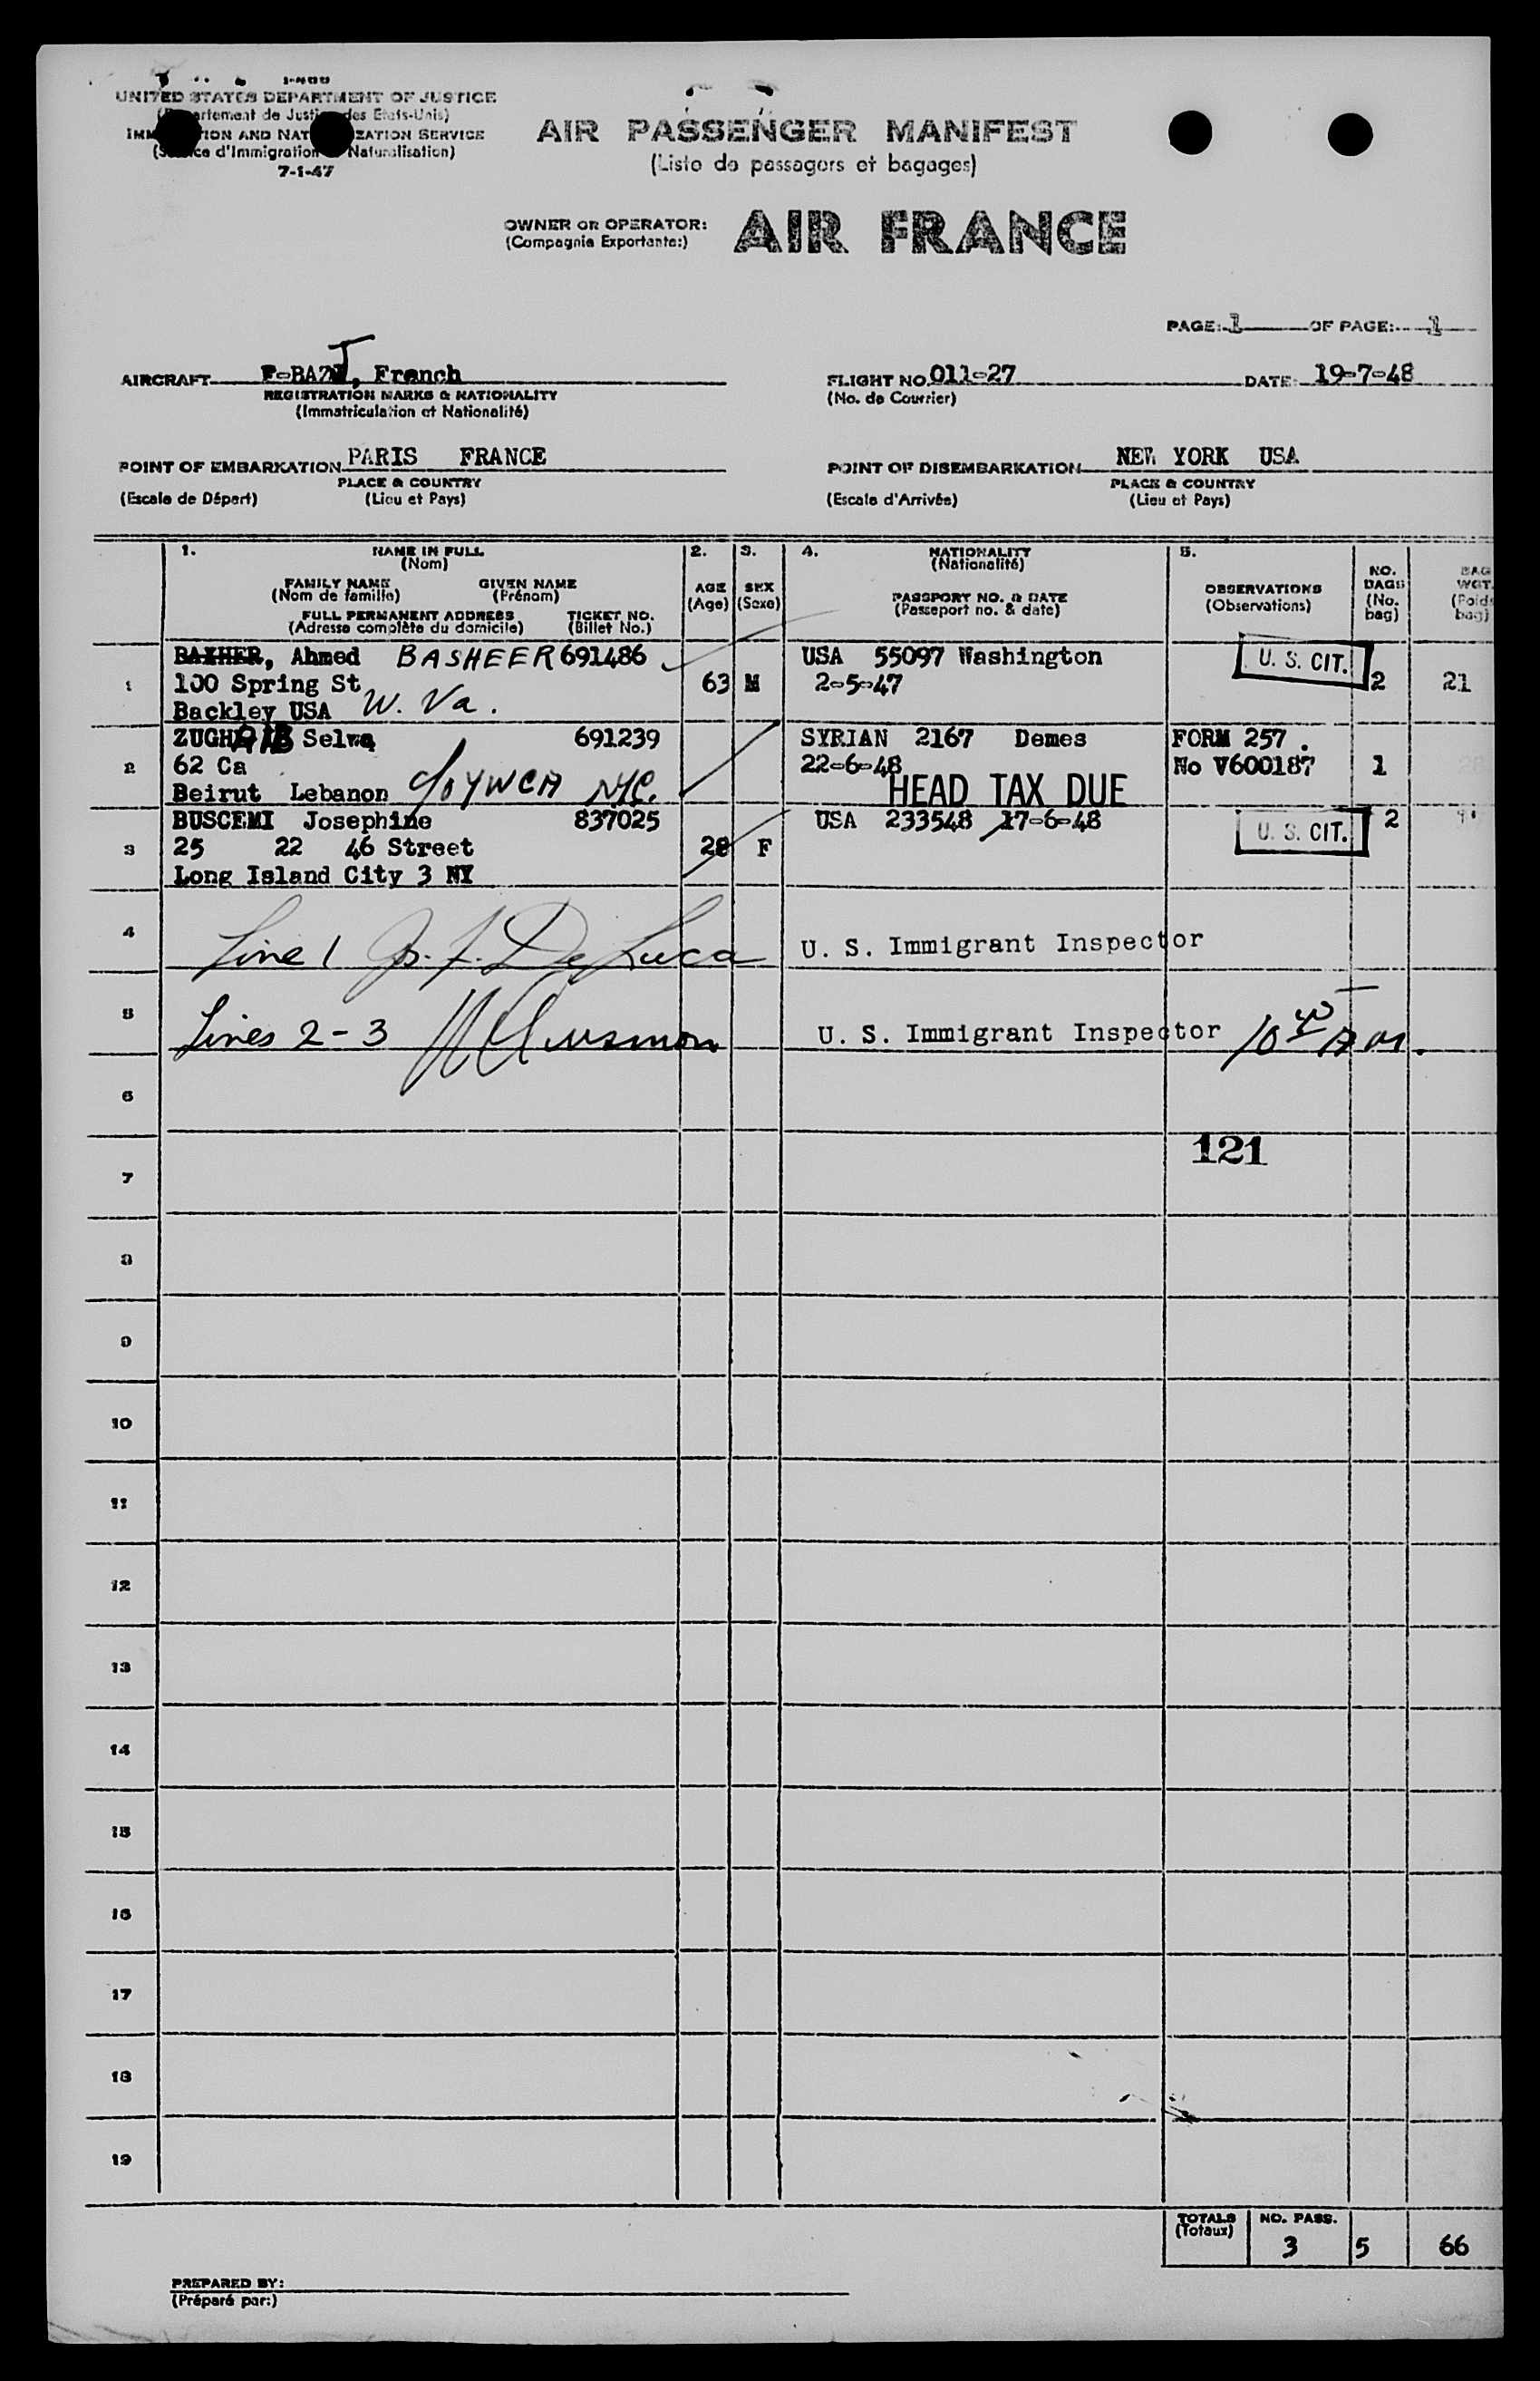 UNITED STATES DEPARTMENT OF JUSTICE
des Etats-Unis)
IMM TION AND NAT ZATION SERVICE
ce d'Immigration Naturalisation)
7-1-47
AIR PASSENGER MANIFEST
(Liste de passagers et bagages)
OWNER OR OPERATOR: AIR FRANCE
(Compagnie Exportante:)
PAGE: 1 OF PAGE: 1
AIRCRAFT F-BAZJ, French
REGISTRATION MARKS & NATIONALITY
(Immatriculation et Nationalité)
FLIGHT NO. 011-27 DATE: 19-7-48
(No. de Courrier)
POINT OF EMBARKATION PARIS FRANCE
PLACE & COUNTRY
(Escale de Départ) (Lieu et Pays)
POINT OF DISEMBARKATION NEW YORK USA
PLACE & COUNTRY
(Escale d'Arrivée) (Lieu et Pays)
1. NAME IN FULL
(Nom)
FAMILY NAME GIVEN NAME
(Nom de famille) (Prénom)
FULL PERMANENT ADDRESS TICKET NO.
(Adresse complète du domicile) (Billet No.)
2.
AGE
(Age)
3.
SEX
(Sexe)
4. NATIONALITY
(Nationalité)
PASSPORT NO. & DATE
(Passeport no. & date)
5.
OBSERVATIONS
(Observations)
NO.
BAGS
(No.
bag)
BAG
WGT.
(Poids
bag)
1 BAXHER, Ahmed BASHEER 691486 USA 55097 Washington U. S. CIT.
100 Spring St 63 M 2-5-47 2 21
Backley USA W. Va.
2 ZUGHAIB Selwa 691239 SYRIAN 2167 Demes FORM 257.
62 Ca 22-6-48 No V600187 1
Beirut Lebanon c/o YWCA NYC. HEAD TAX DUE
3 BUSCEMI Josephine 837025 USA 233548 17-6-48 U. S. CIT. 2
25 22 46 Street 28 F
Long Island City 3 NY
4 Line 1 De Luca U. S. Immigrant Inspector
5 Lines 2-3 U. S. Immigrant Inspector 10 40 AM.
6
121
7
8
9
10
11
12
13
14
15
16
17
18
19
TOTALS NO. PASS.
(Totaux) 3 5 66
PREPARED BY:
(Préparé par:)